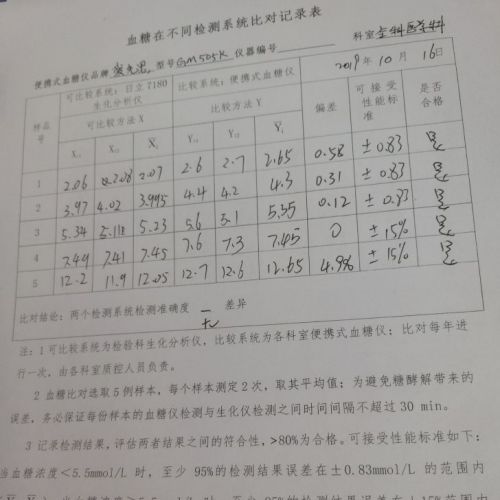 血糖在不同检测系统比对记录表
科室全科医学科
便携式血糖仪品牌 型号GM505K 仪器编号
2019年10月16日
样品号 可比较系统：日立7180生化分析仪 比较系统：便携式血糖仪
可比较方法X 比较方法Y 偏差 可接受性能标准 是否合格
Xi1 Xi2 X̄i Yi1 Yi2 Ȳi
1 2.06 2.08 2.07 2.6 2.7 2.65 0.58 ±0.83 是
2 3.97 4.02 3.995 4.4 4.2 4.3 0.31 ±0.83 是
3 5.34 5.118 5.23 5.6 5.1 5.35 0.12 ±0.83 是
4 7.49 7.41 7.45 7.6 7.3 7.45 0 ±15% 是
5 12.2 11.9 12.05 12.7 12.6 12.65 4.9% ±15% 是
比对结论：两个检测系统检测准确度 无 差异
注：1可比较系统为检验科生化分析仪，比较系统为各科室便携式血糖仪；比对每年进
行一次，由各科室质控人员负责。
2 血糖比对选取5例样本，每个样本测定2次，取其平均值；为避免糖酵解带来的
误差，务必保证每份样本的血糖仪检测与生化仪检测之间时间间隔不超过30 min。
3 记录检测结果，评估两者结果之间的符合性，>80%为合格。可接受性能标准如下：
当血糖浓度<5.5mmol/L 时，至少 95%的检测结果误差在±0.83mmol/L 的范围内